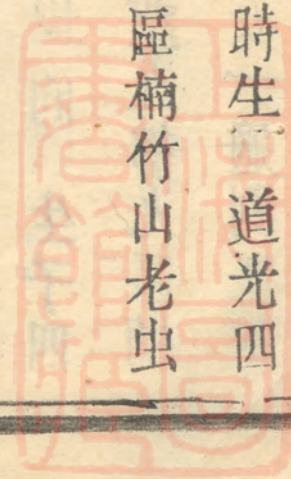 時生 道光四
區楠竹山老虫